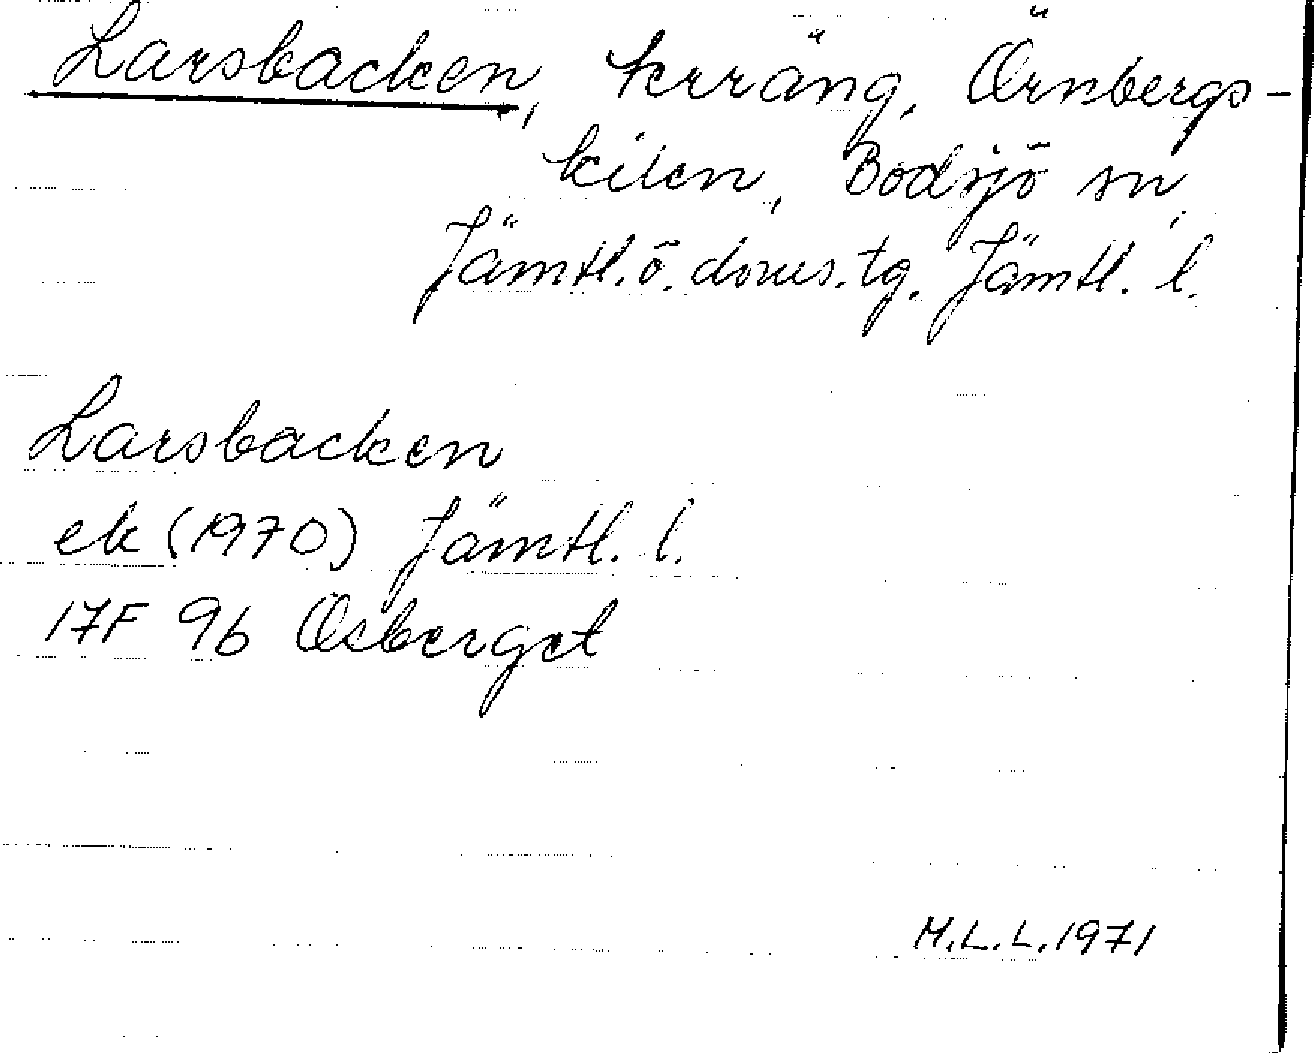 Larsbacken, krräng, Örnbergs-
kilen, Bodsjö sn,
Jämtl. ö. doms. tg. Jämtl. l.
Larsbacken
ek (1970) Jämtl. l.
17F 9b Osberget
M.L.L. 1971